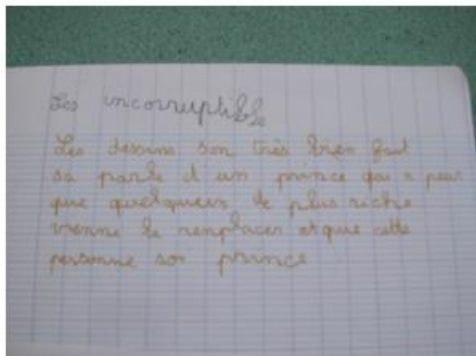 Les incorruptible
Les dessins son très bien fait
sa parle d un prince qui a peur
que quelqueun de plus riche
vienne le remplacer et que cette
personne soi prince